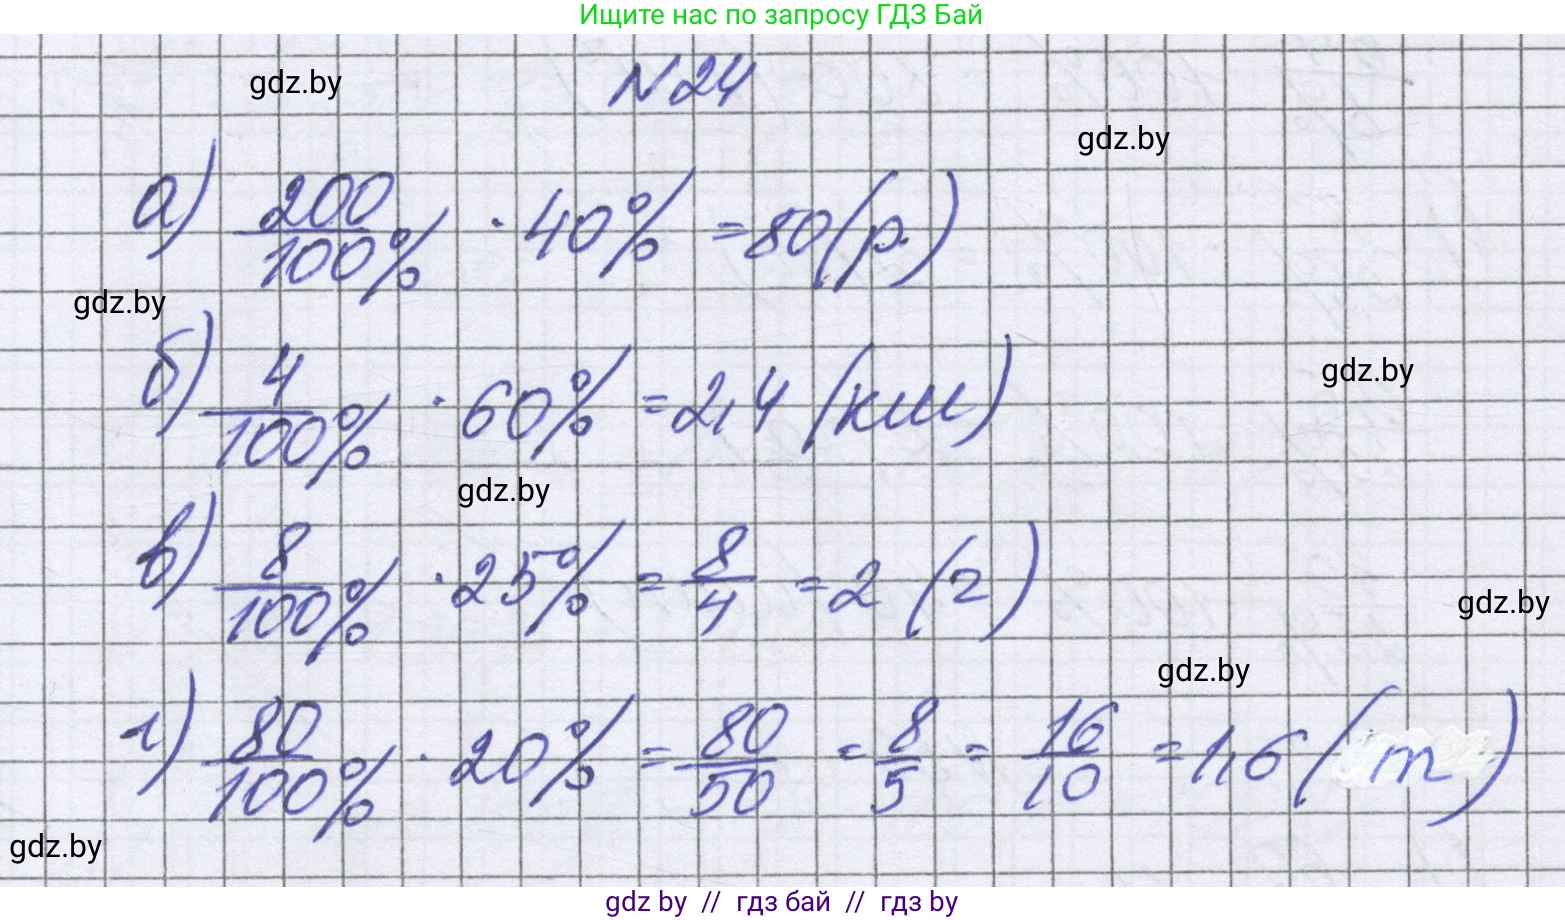 Ищите нас по запросу ГДЗ Бай
gdz.by
№24
gdz.by
а) 200/100% · 40% = 80 (р.)
gdz.by
б) 4/100% · 60% = 2,4 (км)
gdz.by
gdz.by
в) 8/100% · 25% = 8/4 = 2 (г)
gdz.by
gdz.by
г) 80/100% · 20% = 80/50 = 8/5 = 16/10 = 1,6 (т)
gdz.by
gdz by // гдз бай // гдз by